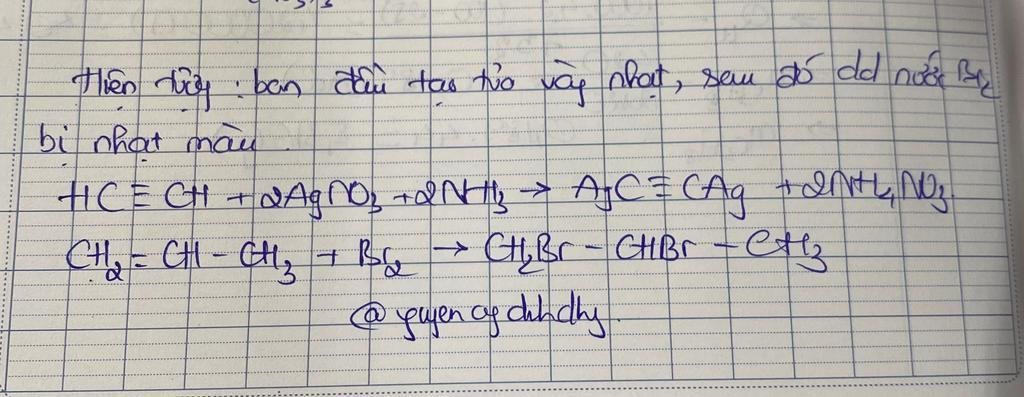 Hiện tượng : ban đầu tạo tủa vàng nhạt, sau đó dd nước Br₂
bị nhạt màu.
HC ≡ CH + 2AgNO₃ + 2NH₃ → AgC ≡ CAg + 2NH₄NO₃.
CH₂ = CH - CH₃ + Br₂ → CH₂Br - CHBr - CH₃